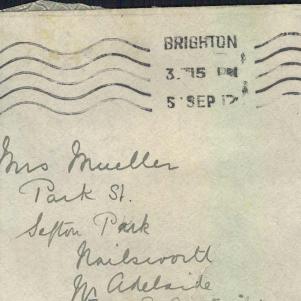 BRIGHTON
3.15 PM
5 SEP 17
Mrs Mueller
Park St.
Sefton Park
Nailsworth
Nr Adelaide